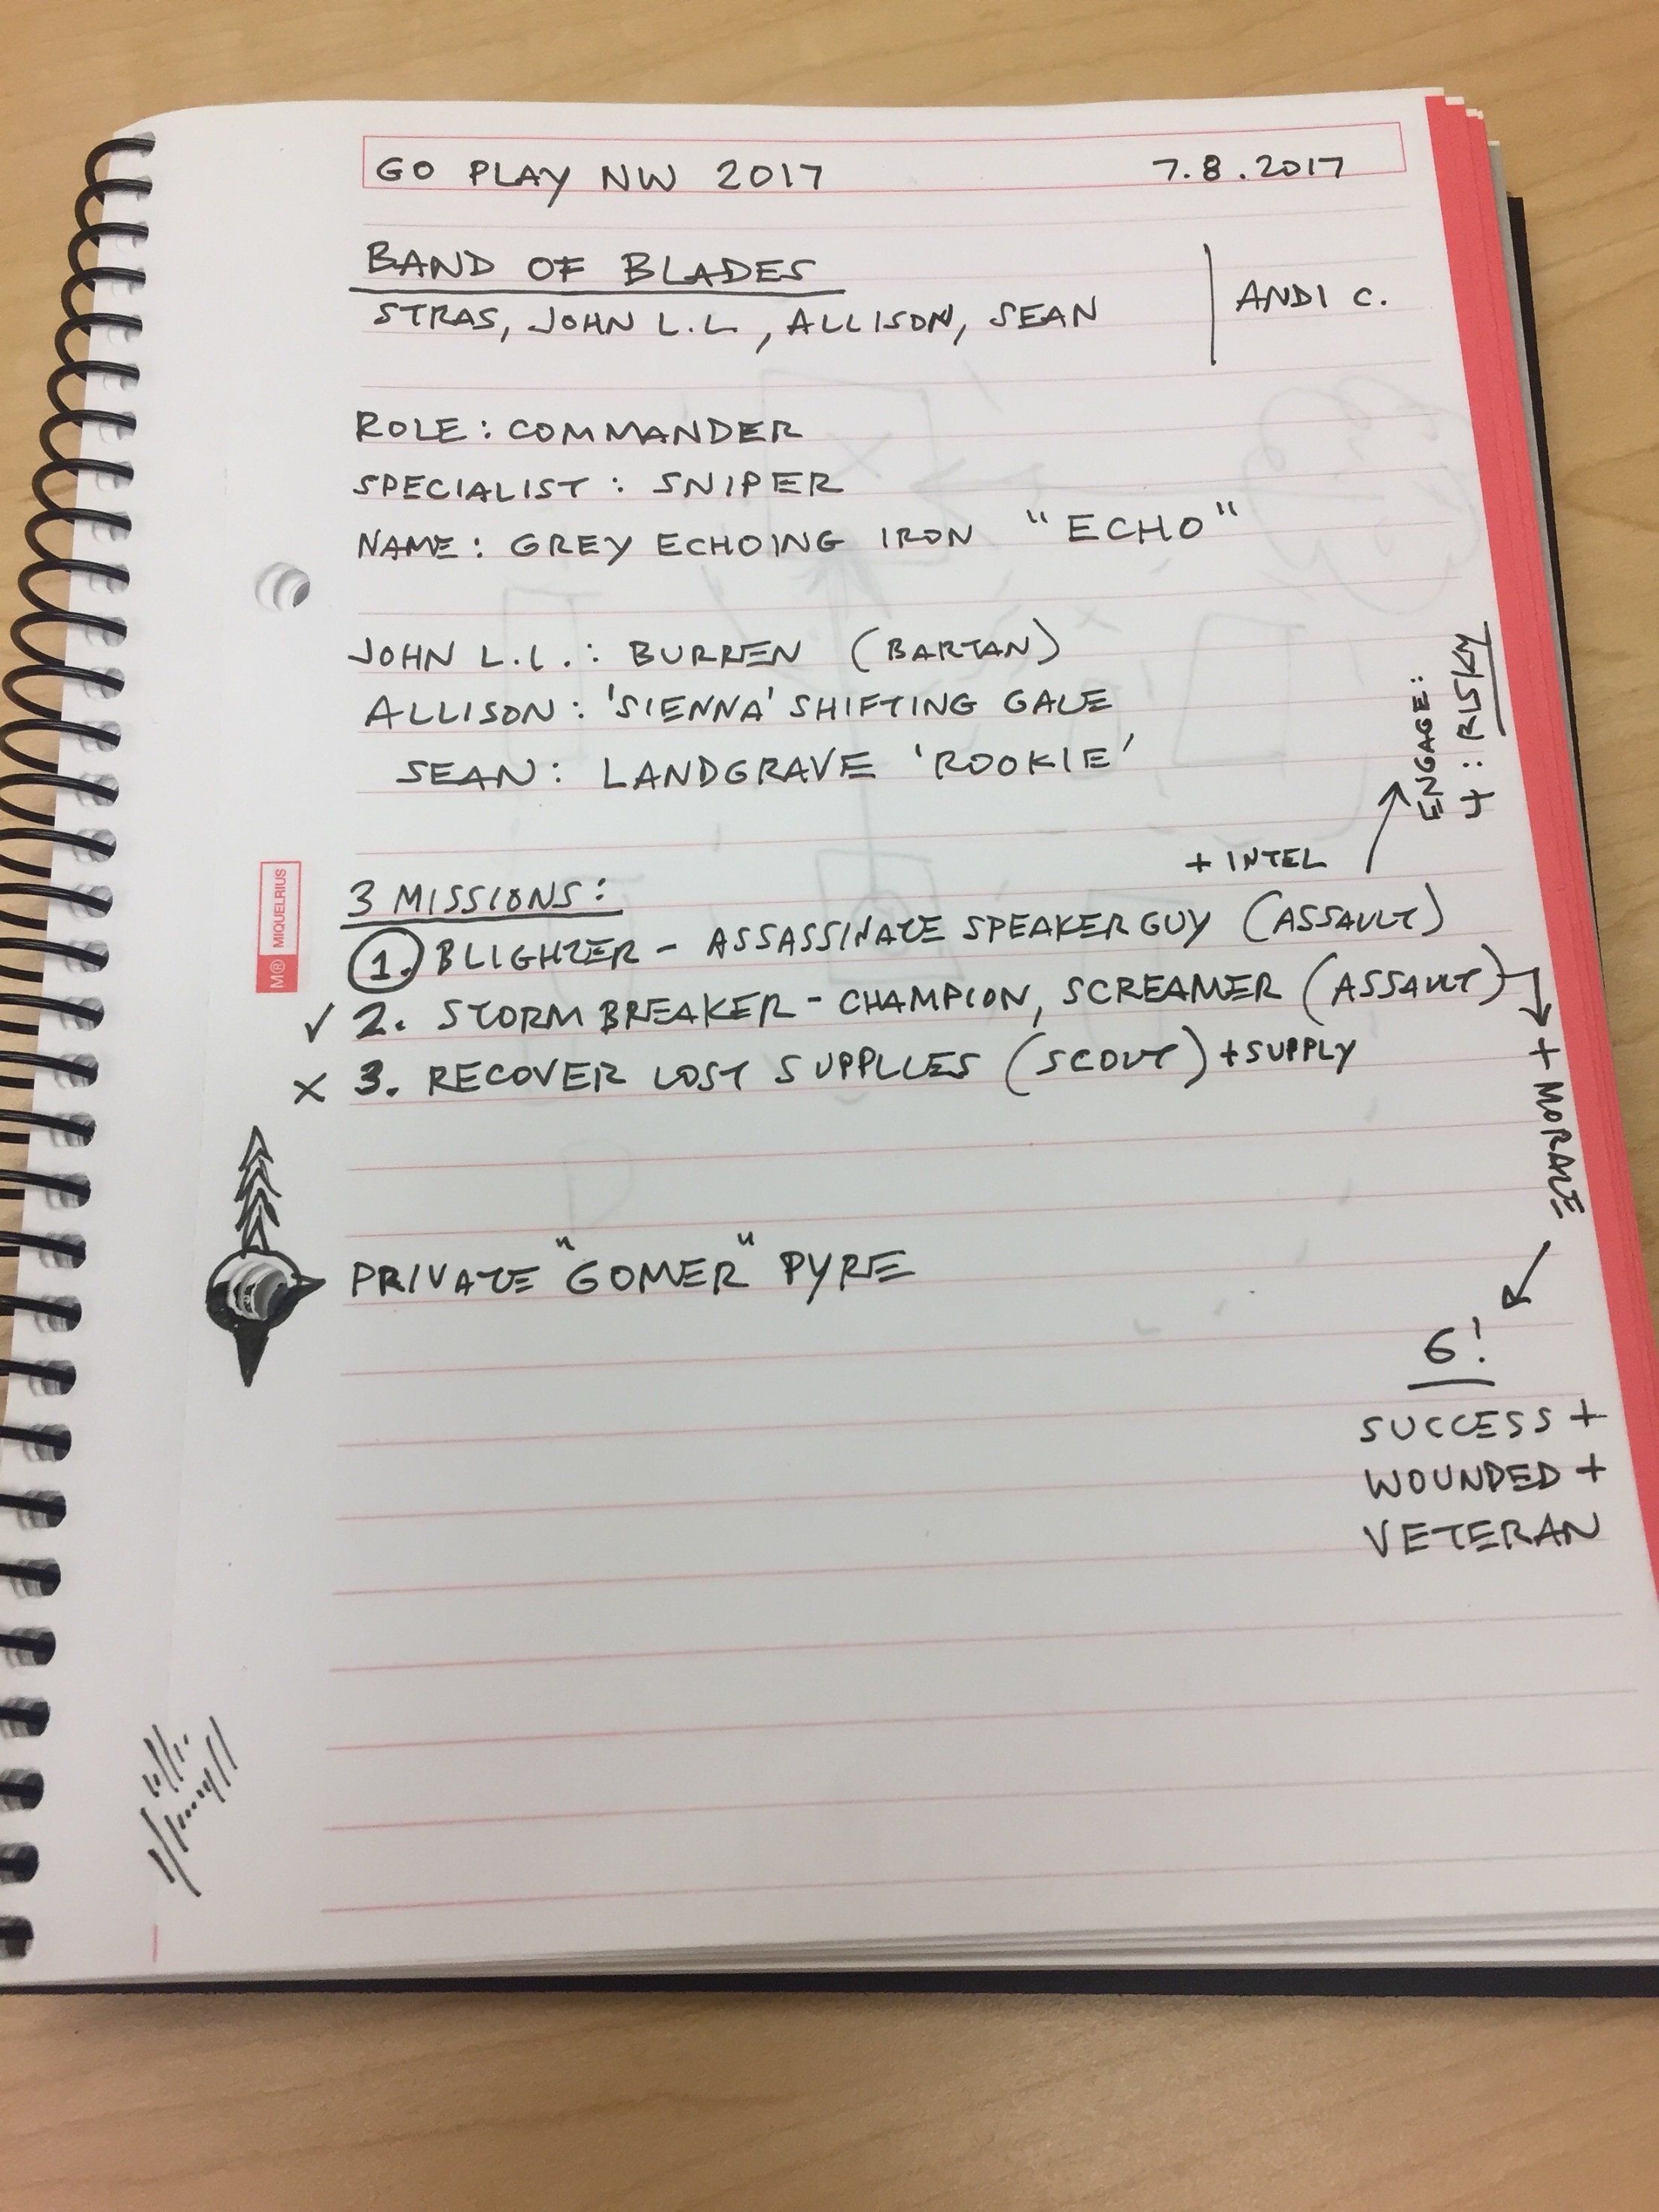 GO PLAY NW 2017 7.8.2017
BAND OF BLADES
STRAS, JOHN L.L., ALLISON, SEAN | ANDI C.
ROLE: COMMANDER
SPECIALIST: SNIPER
NAME: GREY ECHOING IRON "ECHO"
JOHN L.L.: BURREN (BARTAN)
ALLISON: 'SIENNA' SHIFTING GALE
SEAN: LANDGRAVE 'ROOKIE'
ENGAGE:
4: RISKY
+ INTEL
3 MISSIONS:
1. BLIGHTER - ASSASSINATE SPEAKER GUY (ASSAULT)
✓ 2. STORMBREAKER - CHAMPION, SCREAMER (ASSAULT)
X 3. RECOVER LOST SUPPLIES (SCOUT) + SUPPLY
+ MORALE
PRIVATE "GOMER" PYRE
6!
SUCCESS +
WOUNDED +
VETERAN
M® MIQUELRIUS